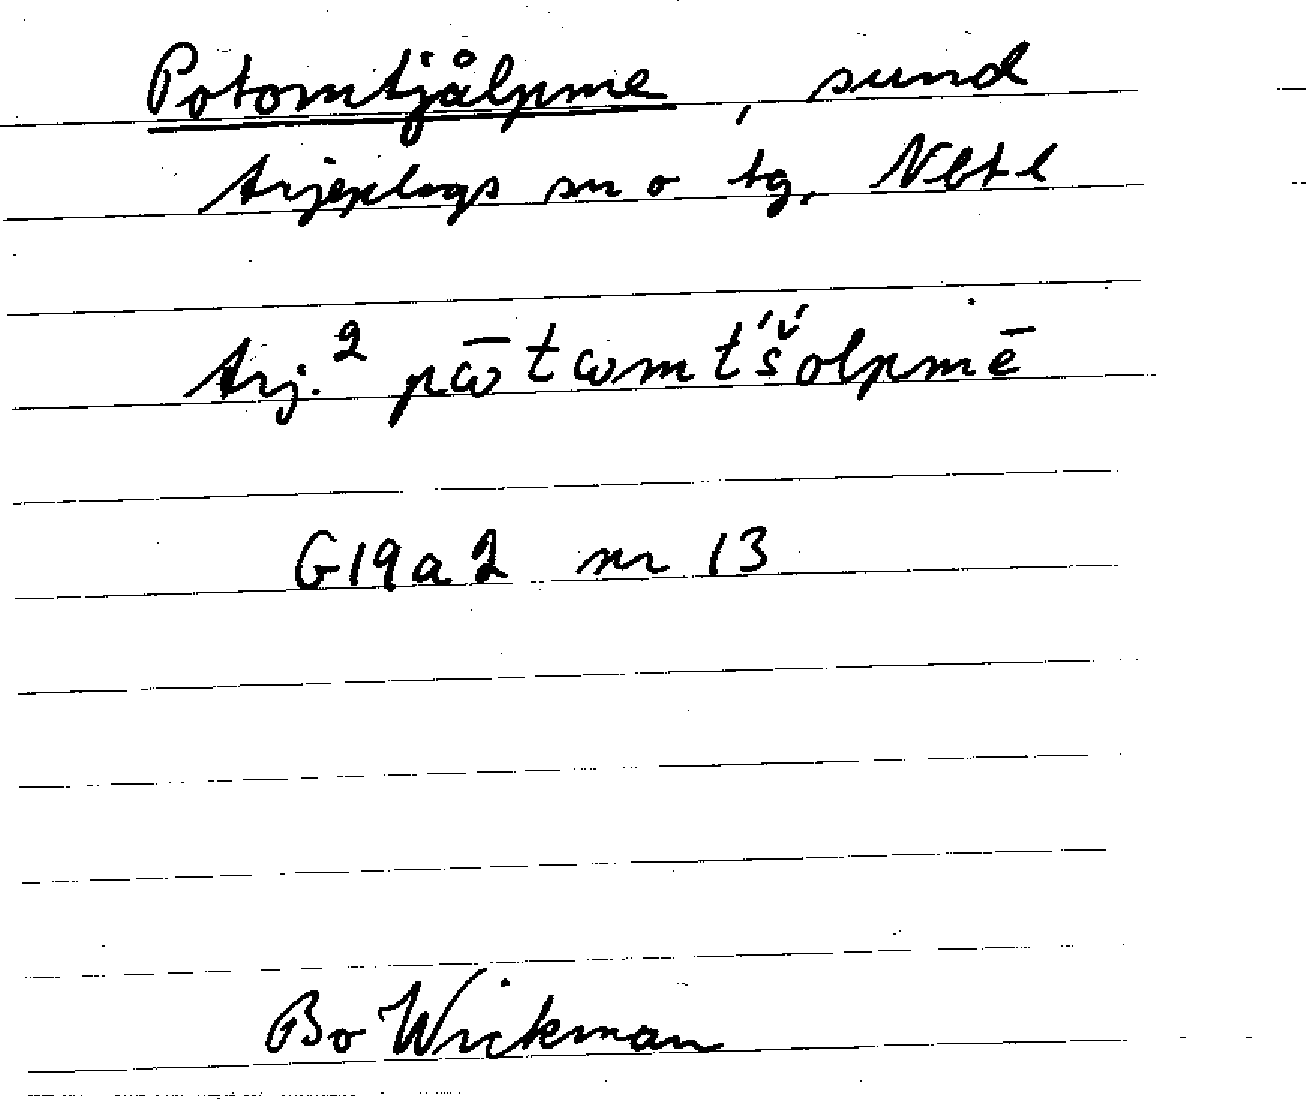 Potomtjålpme, sund
Arjeplogs sn o tg, Nbtl
Arj.² pω̄tωmt́š́olpmē
G19a2 nr 13
Bo Wickman